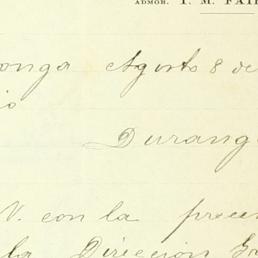 ADMOR. T. M. FAI
onga Agosto 8 de
io
Durang
V. con la proce
la Direccion Ge